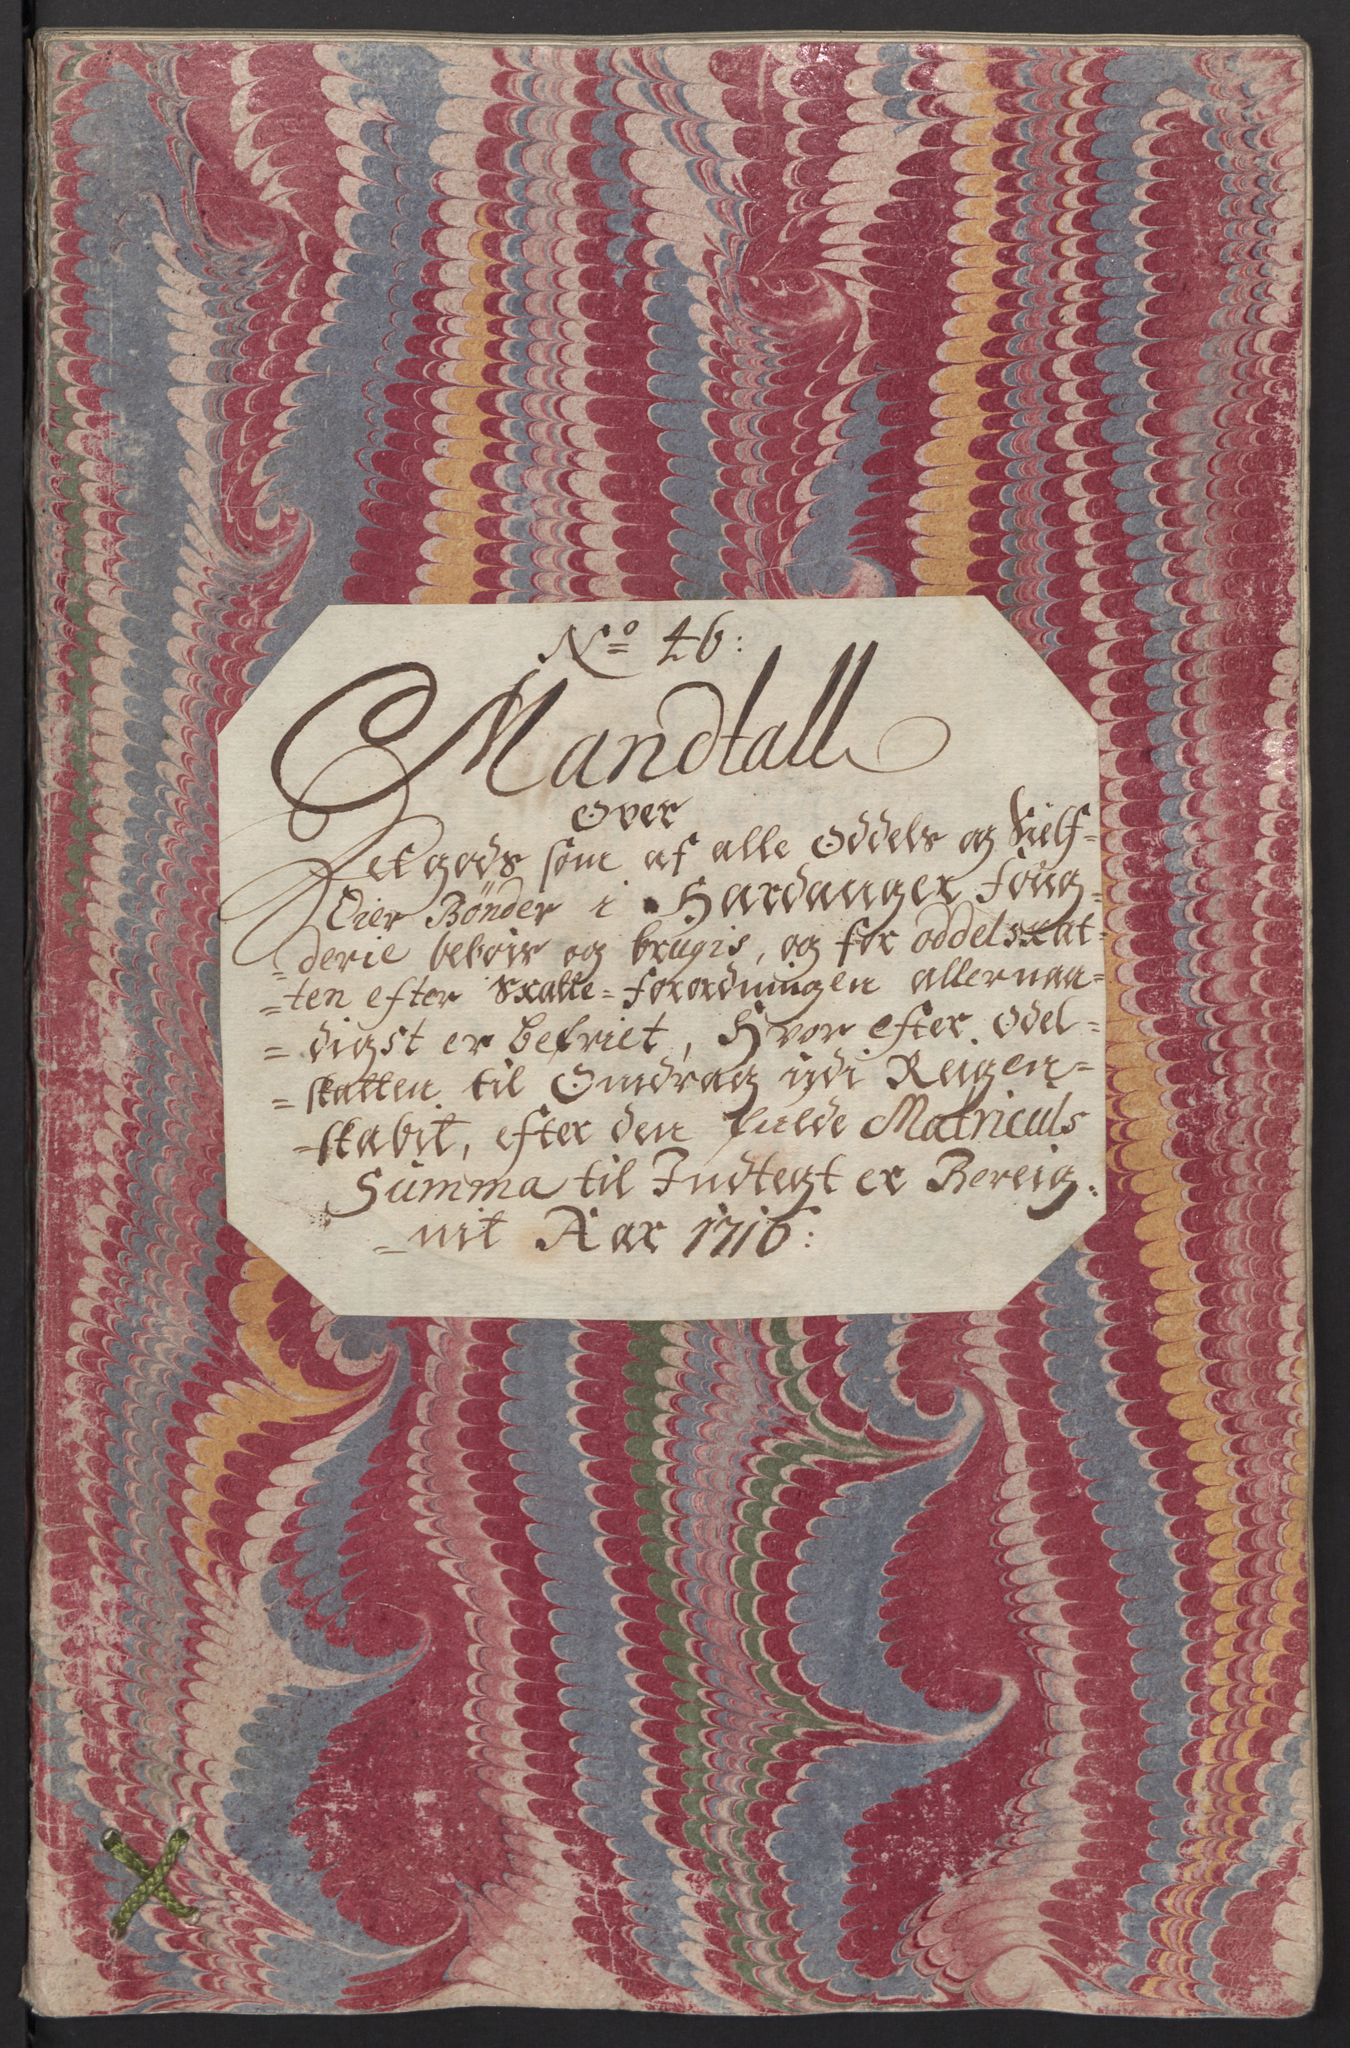 No 46:
Mandtall
Over
Det gods som af alle Oddels og Sielf-
Eier Bønder i Hardanger Foug-
-derie bebois og brugis, og for oddelskat-
-ten efter Skatte-forordningen allernaa-
-digst er befriet, Hvor efter Odel-
-skatten til Omdrag udi Reigen-
-skabit, efter den fulde Matriculs
Summa til Indtegt er Bereig-
-nit Aar 1716: